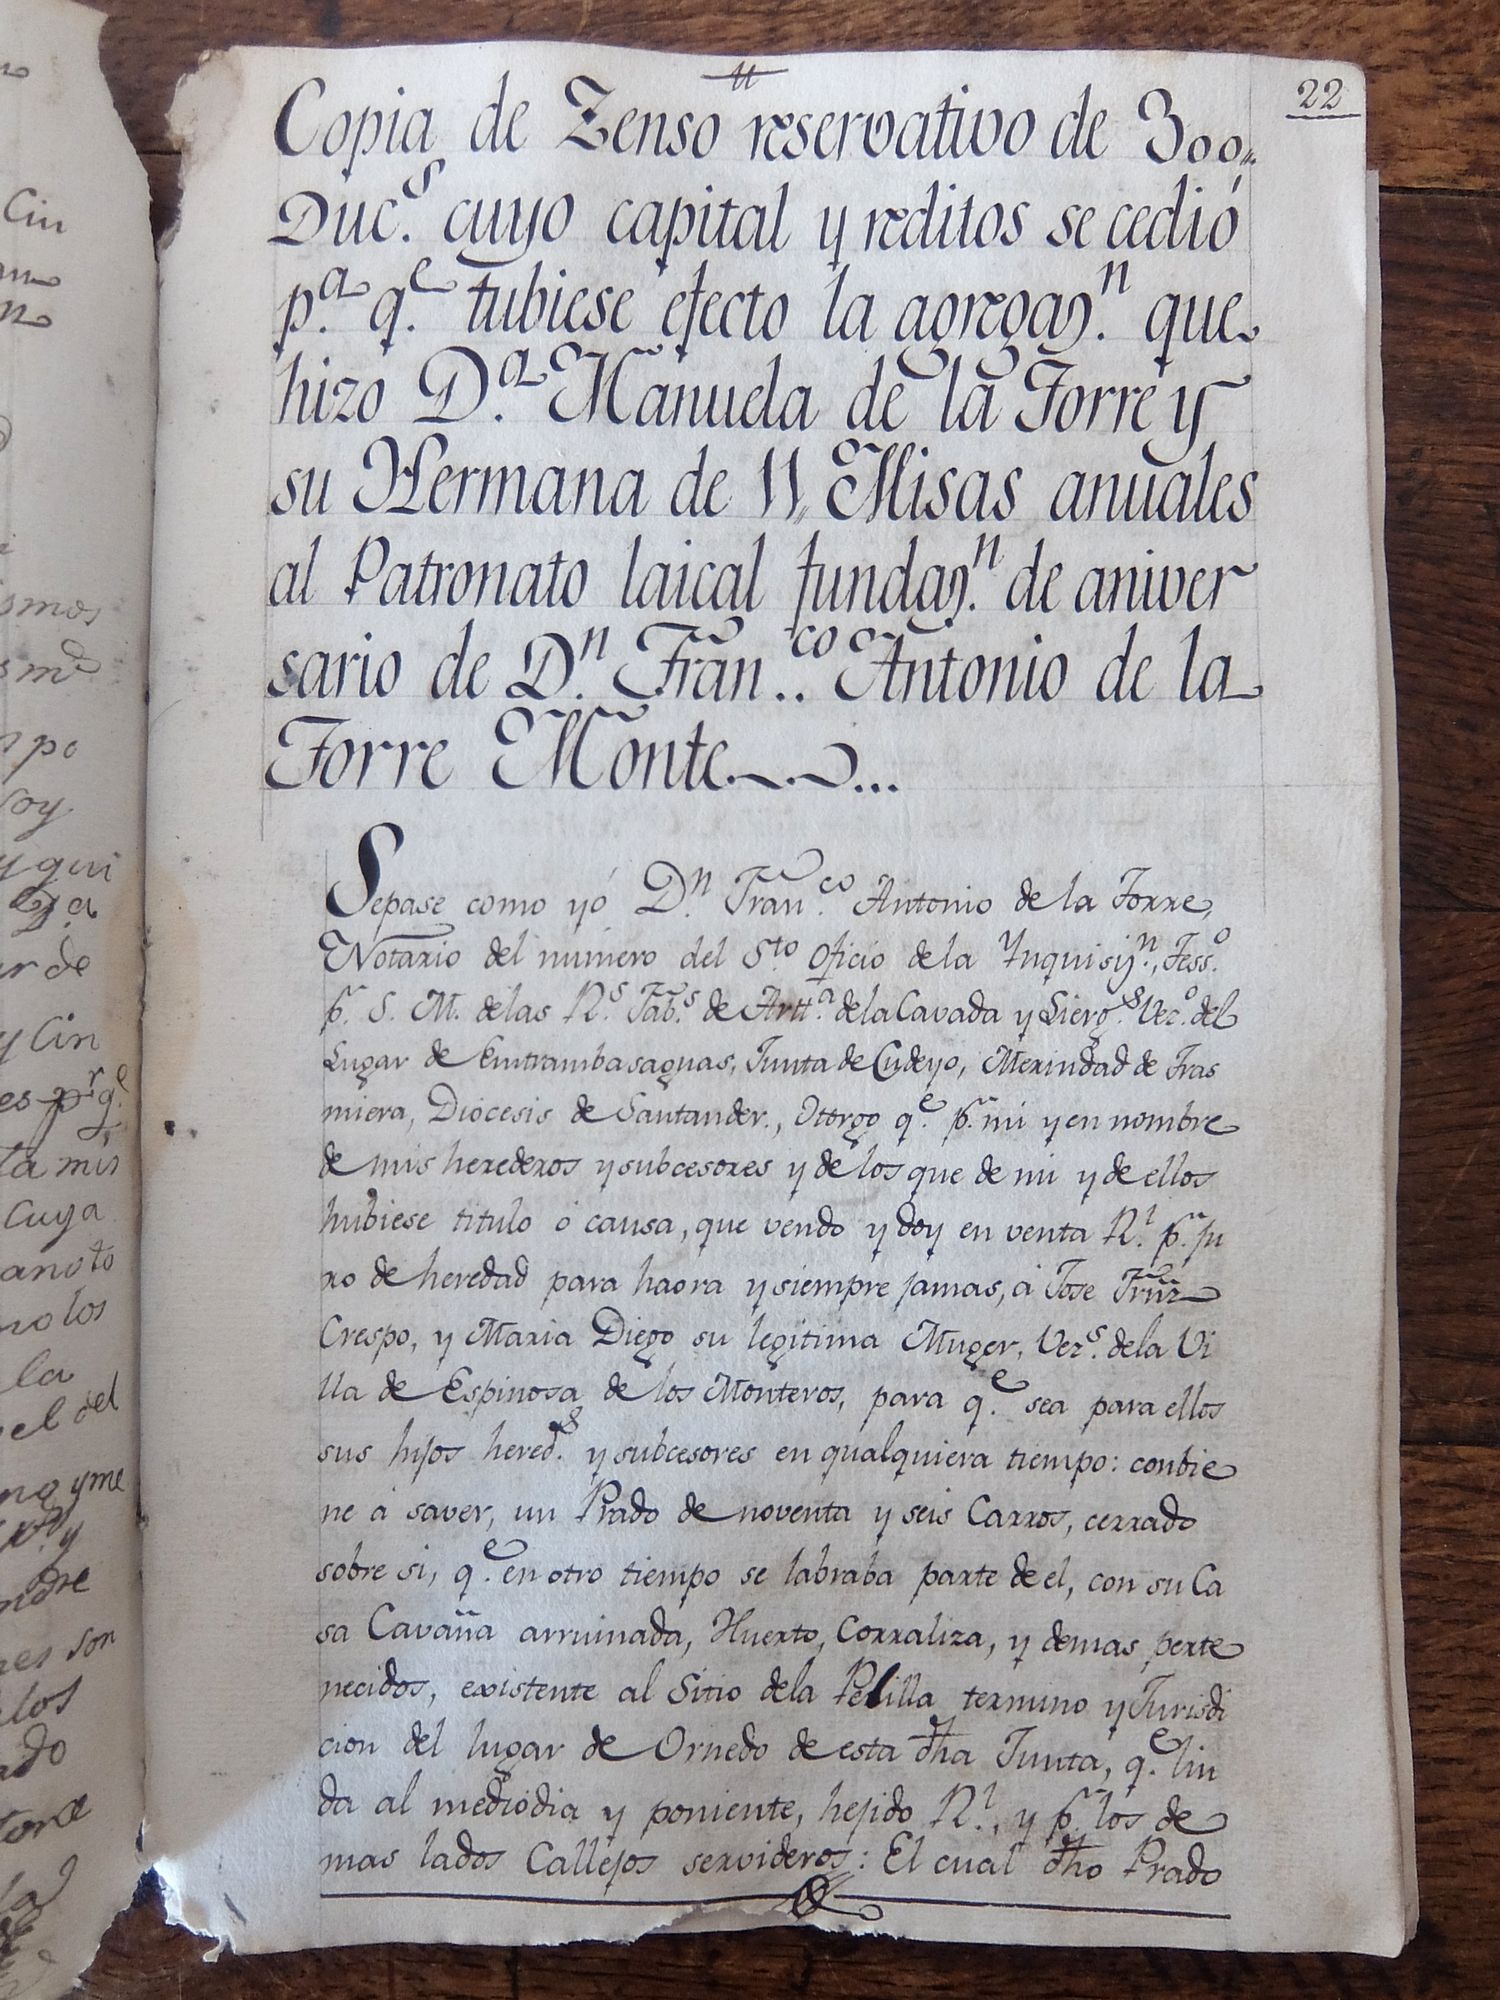 22
Copia de Zenso reservativo de 300,,
Duc.s cuyo capital y reditos se cedió
p.a q.e tubiese efecto la agregaz.n que
hizo D.a Manuela de la Torre y
su Hermana de 11,, Misas anuales
al Patronato laical fundaz.n de aniver
sario de D.n Fran..co Antonio de la
Torre Monte...
Sepase como yó D.n Fran.co Antonio de la Torre,
Notario del número del S.to Oficio de la Ynquisiz.n, Tess.o
p.r S. M. de las R.s Fab.s de Artt.a de la Cavada y Lierg.s Vec.o del
Lugar de Entrambasaguas, Junta de Cudeyo, Merindad de Tras
miera, Diócesis de Santander., Otorgo q.e p.r mi y en nombre
de mis herederos y subcesores y de los que de mi y de ellos
hubiese titulo ó causa, que vendo y doy en venta R.l p.r ju
ro de heredad para haora y siempre jamas, á Jose Frñz
Crespo, y Maria Diego su legitima Muger, Vez.s de la Vi
lla de Espinosa de los Monteros, para q.e sea para ellos
sus hijos hered.s y subcesores en qualquiera tiempo: conbie
ne á saver, un Prado de noventa y seis Carros, cerrado
sobre si, q.e en otro tiempo se labraba parte de el, con su Ca
sa Cavaña arruinada, Huerto, Corraliza, y demas perte
necidos, existente al Sitio de la Pelilla termino y Jurisdi
cion del lugar de Ornedo de esta dha Junta, q.e lin
da al mediodia y poniente, hejido R.l, y p.r los de
mas lados Callejos servideros: El cual dho Prado